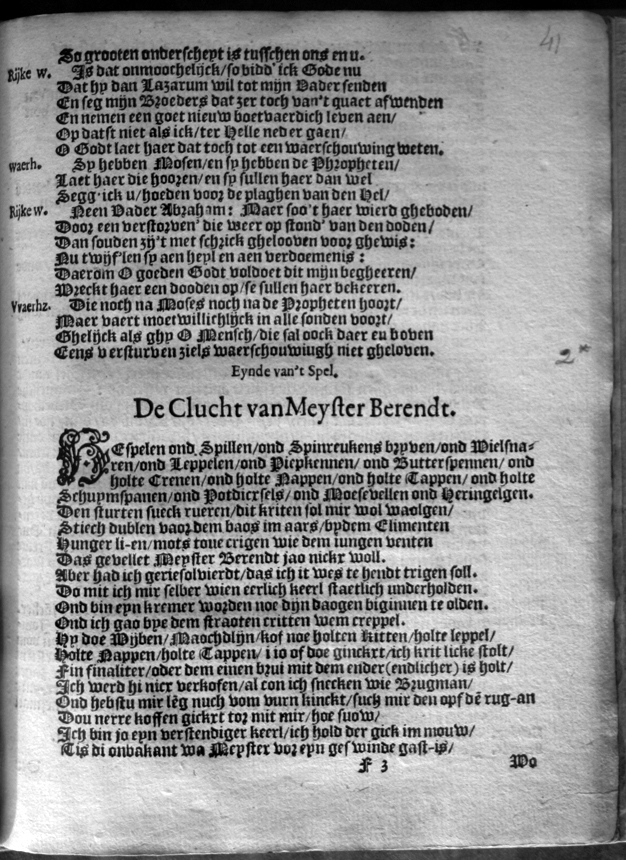 41
So grooten onderscheyt is tusschen ons en u.
Rijke w. Is dat onmoochelijck/so bidd' ick Gode nu
Dat hy dan Lazarum wil tot mijn Vader senden
En seg mijn Broeders dat zer toch van't quact afwenden
En nemen een goet nieuw boetvaerdich leven aen/
Op datst niet als ick/ter Helle neder gaen/
O Godt laet haer dat toch tot een waerschouwing weten.
waerh. Sy hebben Mosen/en sy hebben de Phropheten/
Laet haer die hooren/en sy sullen haer dan wel
Segg' ick u/hoeden voor de plaghen van den Hel/
Rijke w. Neen Vader Abraham: Maer soo't haer wierd gheboden/
Door een verstorven' die weer op stond' van den doden/
Dan souden zy't met schrick ghelooven voor ghewis:
Nu twijf'len sy aen heyl en aen verdoemenis:
Daerom O goeden Godt voldoet dit mijn begheeren/
Wreckt haer een dooden op/se sullen haer bekeeren.
Vraerhz. Die noch na Moses noch na de Propheten hoort/
Maer vaert moetwillichlijck in alle sonden voort/
Ghelijck als ghy O Mensch/die sal oock daer en boven
Eens versturven ziels waerschouwiugh niet gheloven.
2*
Eynde van't Spel.
De Clucht van Meyster Berendt.
HEspelen ond Spillen/ond Spinreukens bryven/ond Wielsna-
ren/ond Leppelen/ond Piepkennen/ ond Butterspennen/ ond
holte Crenen/ond holte Nappen/ond holte Tappen/ ond holte
Schuymspanen/ond Potdiersels/ ond Moesevellen ond Heringelgen.
Den sturten sueck rueren/dit kriten sol mir wol waolgen/
Stiech dublen vaor dem baos im aars/bydem Elimenten
Hunger li-en/mots toue crigen wie dem iungen venten
Das gevellet Meyster Berendt jao nickr woll.
Aber had ich geriesolvierdt/das ich it wes te hendt trigen soll.
Do mit ich mir selber wien eerlich keerl staetlich underholden.
Ond bin eyn kremer worden noe dijn daogen biginnen te olden.
Ond ich gao bye dem straoten critten wem creppel.
Hy doe Wijben/Maochdlijn/kof noe holten Kitten/holte leppel/
Holte Nappen/holte Tappen/ i io of doe ginckrt/ich krit licke stolt/
Fin finaliter/oder dem einen brui mit dem ender(endlicher) is holt/
Ich werd hi nicr verkofen/al con ich snecken wie Brugman/
Ond hebstu mir lēg nuch vom vurn kinckt/suck mir den opf dē rug-an
Dou nerre koffen gickrt tor mit mir/hoe suow/
Ich bin jo eyn verstendiger keerl/ich hold der gick im mouw/
Tis di onbakant wa Meyster vor eyn geswinde gast-is/
F 3 Wo